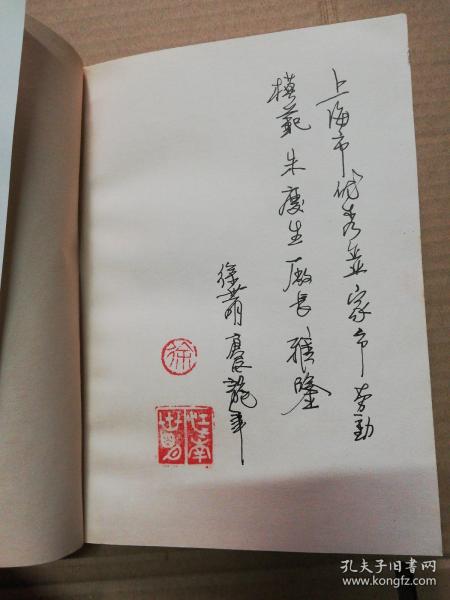 上海市优秀企业家市劳动
模范朱庆生厂长雅鉴
徐萌庚辰龙年
徐
江南
孔夫子旧书网
www.kongfz.com